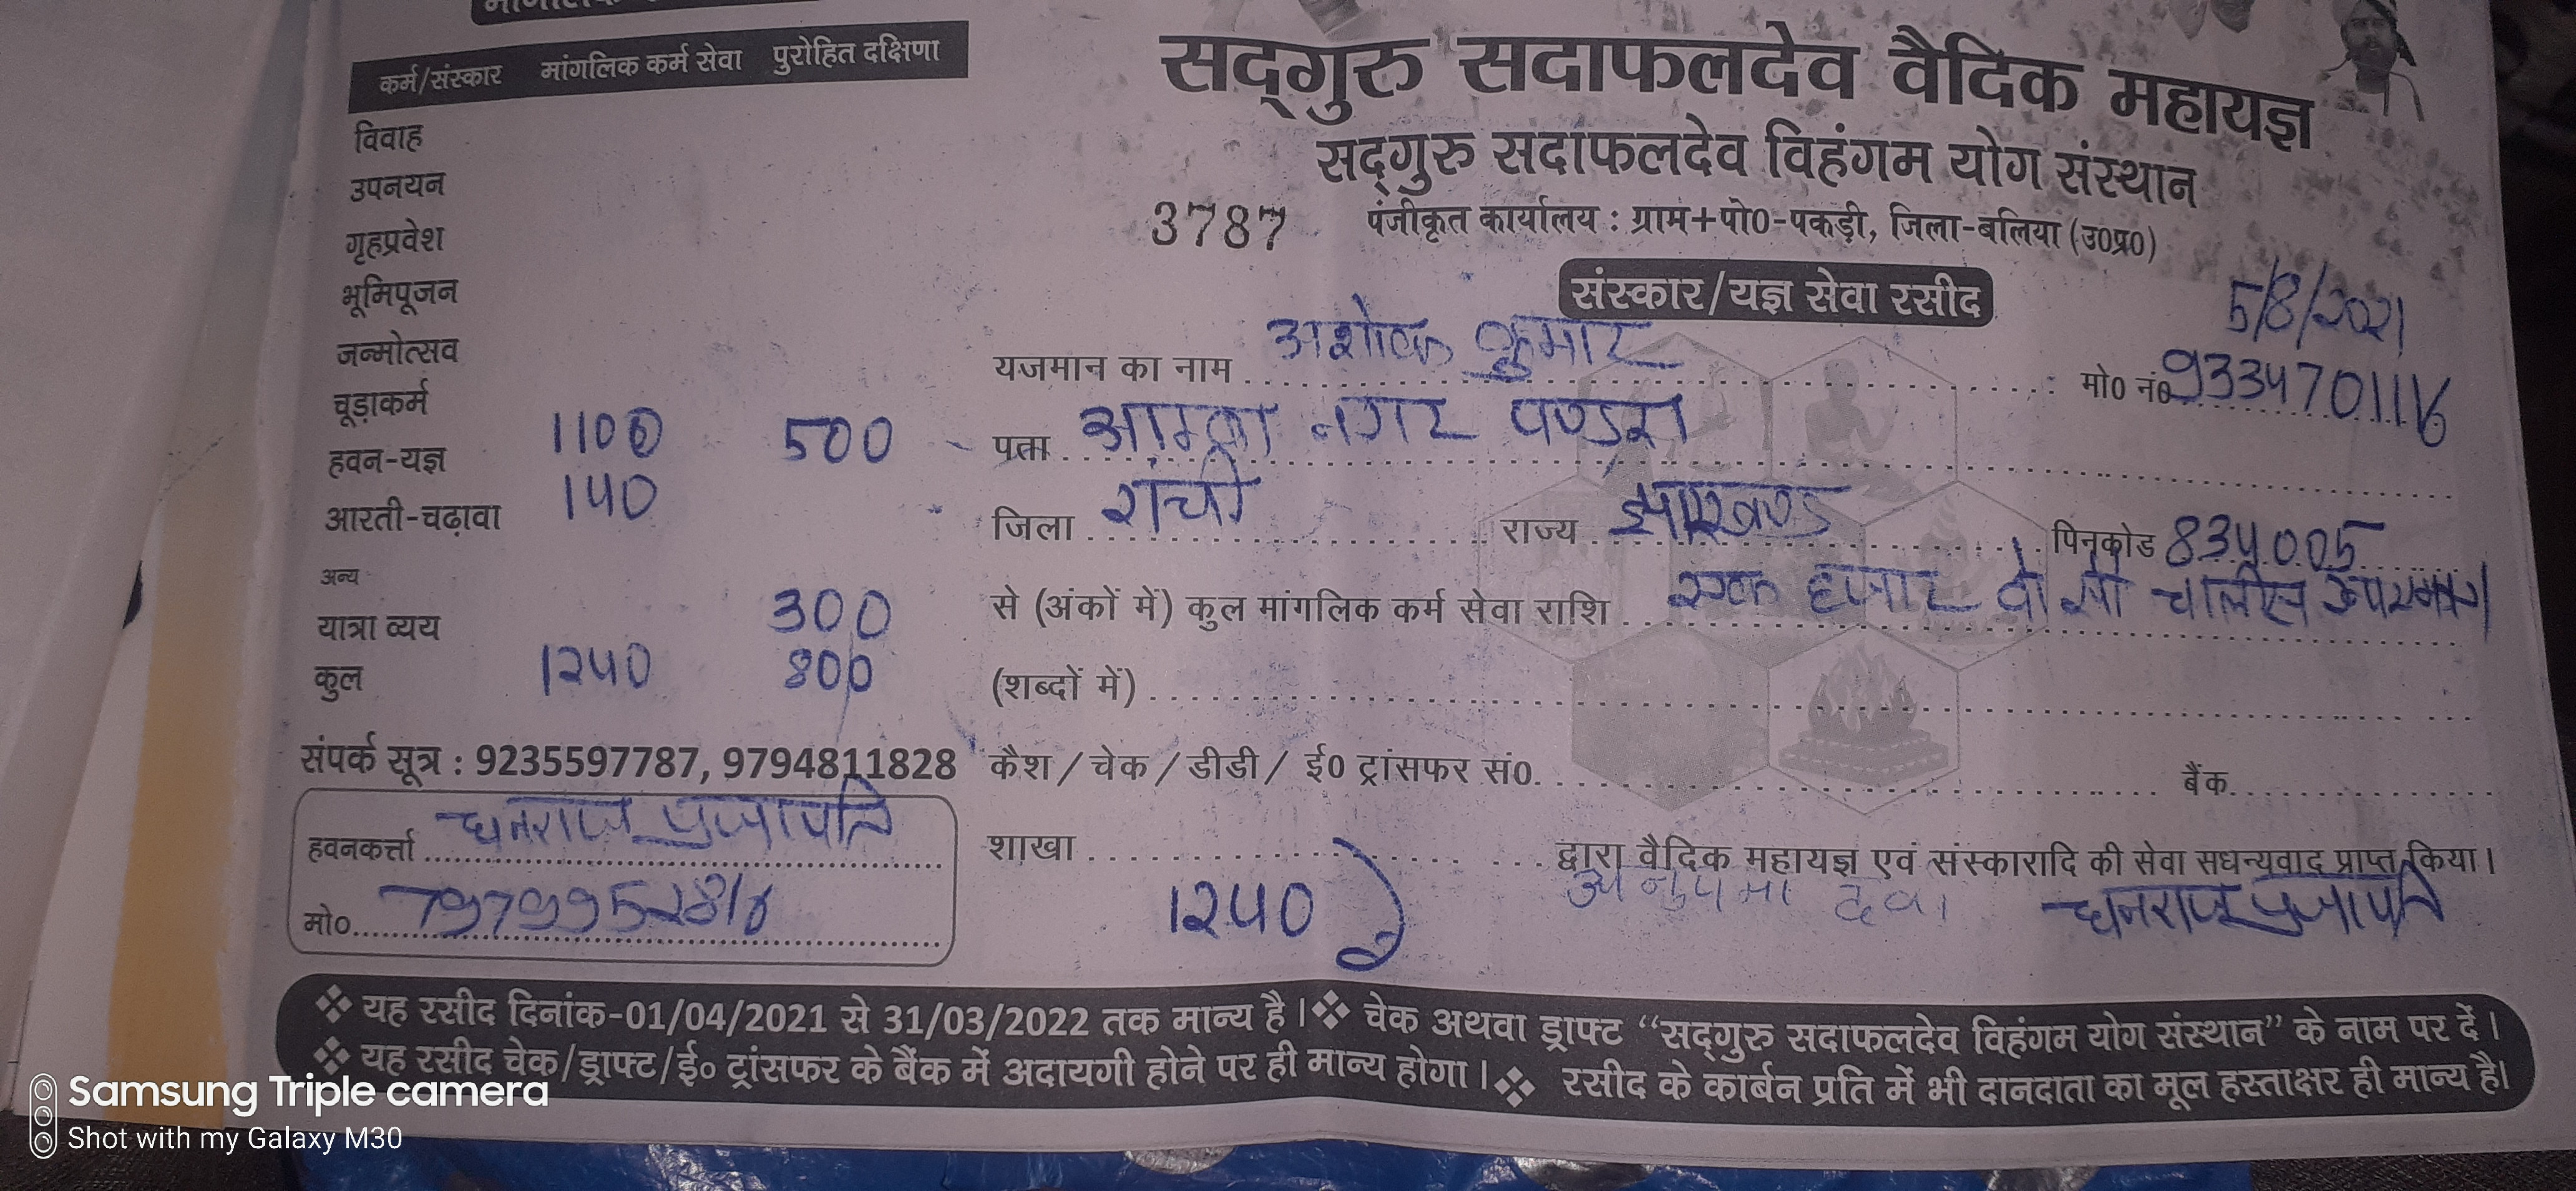 कर्म/संस्कार मांगलिक कर्म सेवा पुरोहित दक्षिणा
विवाह
उपनयन
गृहप्रवेश
भूमिपूजन
जन्मोत्सव
चूड़ाकर्म
हवन-यज्ञ 1100 500
आरती-चढ़ावा 140
अन्य
यात्रा व्यय 300
कुल 1240 800
संपर्क सूत्र : 9235597787, 9794811828
हवनकर्त्ता धनराज प्रजापति
मो०
सद्गुरु सदाफलदेव वैदिक महायज्ञ
सद्गुरु सदाफलदेव विहंगम योग संस्थान
3787 पंजीकृत कार्यालय : ग्राम+पो0-पकड़ी, जिला-बलिया (उ0प्र0)
संस्कार/यज्ञ सेवा रसीद
5/8/2021
यजमान का नाम अशोक कुमार मो0 नं0
पता नगर पण्डरा
जिला रांची राज्य झारखण्ड पिनकोड 834005
से (अंकों में) कुल मांगलिक कर्म सेवा राशि एक हजार दो सौ चालीस
(शब्दों में)
कैश / चेक / डीडी / ई0 ट्रांसफर सं0. बैंक
शाखा द्वारा वैदिक महायज्ञ एवं संस्कारादि की सेवा सधन्यवाद प्राप्त किया।
1240 अनुपमा देवी धनराज प्रजापति
❖ यह रसीद दिनांक-01/04/2021 से 31/03/2022 तक मान्य है। ❖ चेक अथवा ड्राफ्ट “सद्गुरु सदाफलदेव विहंगम योग संस्थान” के नाम पर दें।
❖ यह रसीद चेक/ड्राफ्ट/ई० ट्रांसफर के बैंक में अदायगी होने पर ही मान्य होगा। ❖ रसीद के कार्बन प्रति में भी दानदाता का मूल हस्ताक्षर ही मान्य है।
Samsung Triple camera
Shot with my Galaxy M30